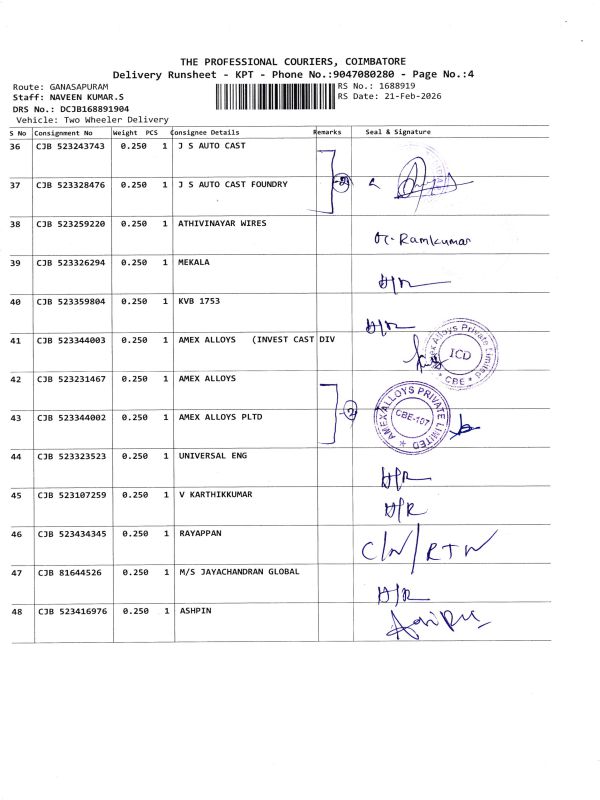 THE PROFESSIONAL COURIERS, COIMBATORE
Delivery Runsheet - KPT - Phone No.:9047080280 - Page No.:4
Route: GANASAPURAM
RS No.: 1688919
Staff: NAVEEN KUMAR.S
RS Date: 21-Feb-2026
DRS No.: DCJB168891904
Vehicle: Two Wheeler Delivery
S No Consignment No Weight PCS Consignee Details Remarks Seal & Signature
36 CJB 523243743 0.250 1 J S AUTO CAST
37 CJB 523328476 0.250 1 J S AUTO CAST FOUNDRY 2
38 CJB 523259220 0.250 1 ATHIVINAYAR WIRES Ramkumar
39 CJB 523326294 0.250 1 MEKALA D/R
40 CJB 523359804 0.250 1 KVB 1753 D/R
41 CJB 523344003 0.250 1 AMEX ALLOYS (INVEST CAST DIV Amex Alloys Private Limited ICD * CBE *
42 CJB 523231467 0.250 1 AMEX ALLOYS
43 CJB 523344002 0.250 1 AMEX ALLOYS PLTD 2 AMEX ALLOYS PRIVATE LIMITED CBE-107
44 CJB 523323523 0.250 1 UNIVERSAL ENG D/R
45 CJB 523107259 0.250 1 V KARTHIKKUMAR D/R
46 CJB 523434345 0.250 1 RAYAPPAN C/N/RTN
47 CJB 81644526 0.250 1 M/S JAYACHANDRAN GLOBAL D/R
48 CJB 523416976 0.250 1 ASHPIN